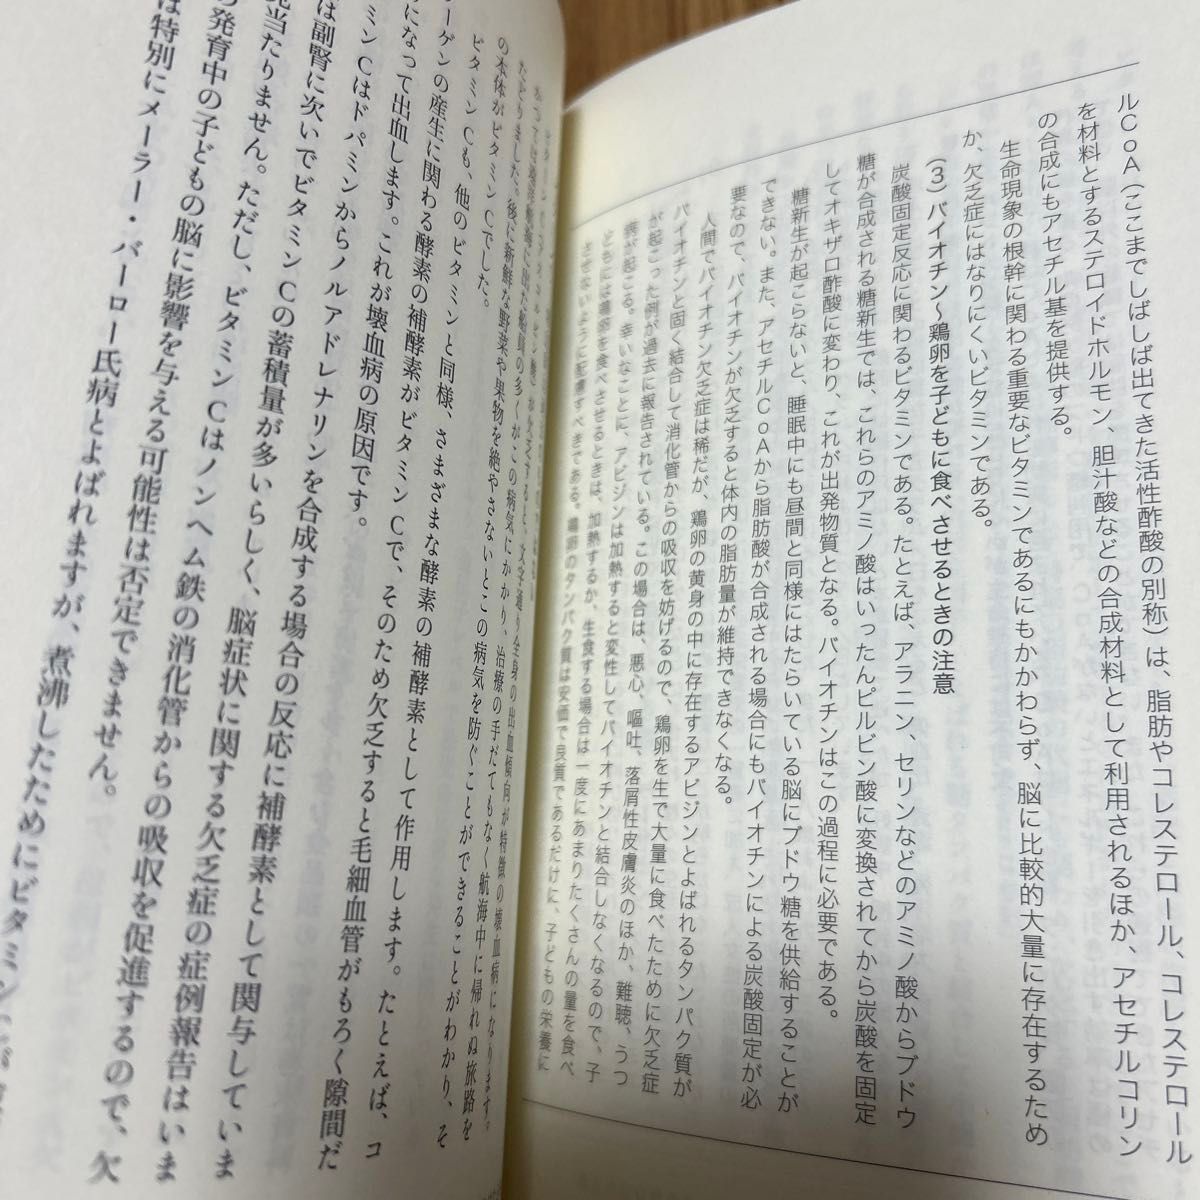 ルCoA（ここまでしばしば出てきた活性酢酸の別称）は、脂肪やコレステロール、コレステロール
を材料とするステロイドホルモン、胆汁酸などの合成材料として利用されるほか、アセチルコリン
の合成にもアセチル基を提供する。
生命現象の根幹に関わる重要なビタミンであるにもかかわらず、脳に比較的大量に存在するため
か、欠乏症にはなりにくいビタミンである。
（3）バイオチン～鶏卵を子どもに食べさせるときの注意
炭酸固定反応に関わるビタミンである。たとえば、アラニン、セリンなどのアミノ酸からブドウ
糖が合成される糖新生では、これらのアミノ酸はいったんピルビン酸に変換されてから炭酸を固定
してオキザロ酢酸に変わり、これが出発物質となる。バイオチンはこの過程に必要である。
糖新生が起こらないと、睡眠中にも昼間と同様にはたらいている脳にブドウ糖を供給することが
できない。また、アセチルCoAから脂肪酸が合成される場合にもバイオチンによる炭酸固定が必
要なので、バイオチンが欠乏すると体内の脂肪量が維持できなくなる。
人間でバイオチン欠乏症は稀だが、鶏卵の黄身の中に存在するアビジンとよばれるタンパク質が
バイオチンと固く結合して消化管からの吸収を妨げるので、鶏卵を生で大量に食べたために欠乏症
が起こった例が過去に報告されている。この場合は、悪心、嘔吐、落屑性皮膚炎のほか、難聴、うつ
病が起こる。幸いなことに、アビジンは加熱すると変性してバイオチンと結合しなくなるので、子
どもには鶏卵を食べさせるときは、加熱するか、生食する場合は一度にあまりたくさんの量を食べ
させないように配慮すべきである。鶏卵のタンパク質は安価で良質であるだけに、子どもの栄養に
欠乏すると、文字通り全身の出血傾向が特徴の壊血病になります。
かつては遠洋航海に出た船員の多くがこの病気にかかり、治療の手だてもなく航海中に帰れぬ旅路を
たどりました。後に新鮮な野菜や果物を絶やさないとこの病気を防ぐことができることがわかり、そ
の本体がビタミンCでした。
ビタミンCも、他のビタミンと同様、さまざまな酵素の補酵素として作用します。たとえば、コ
ーゲンの産生に関わる酵素の補酵素がビタミンCで、そのため欠乏すると毛細血管がもろく隙間だ
になって出血します。これが壊血病の原因です。
ミンCはドパミンからノルアドレナリンを合成する場合の反応に補酵素として関与していま
は副腎に次いでビタミンCの蓄積量が多いらしく、脳症状に関する欠乏症の症例報告はいま
見当たりません。ただし、ビタミンCはノンヘム鉄の消化管からの吸収を促進するので、欠
の発育中の子どもの脳に影響を与える可能性は否定できません。
は特別にメーラー・バーロー氏病とよばれますが、煮沸したためにビタミン